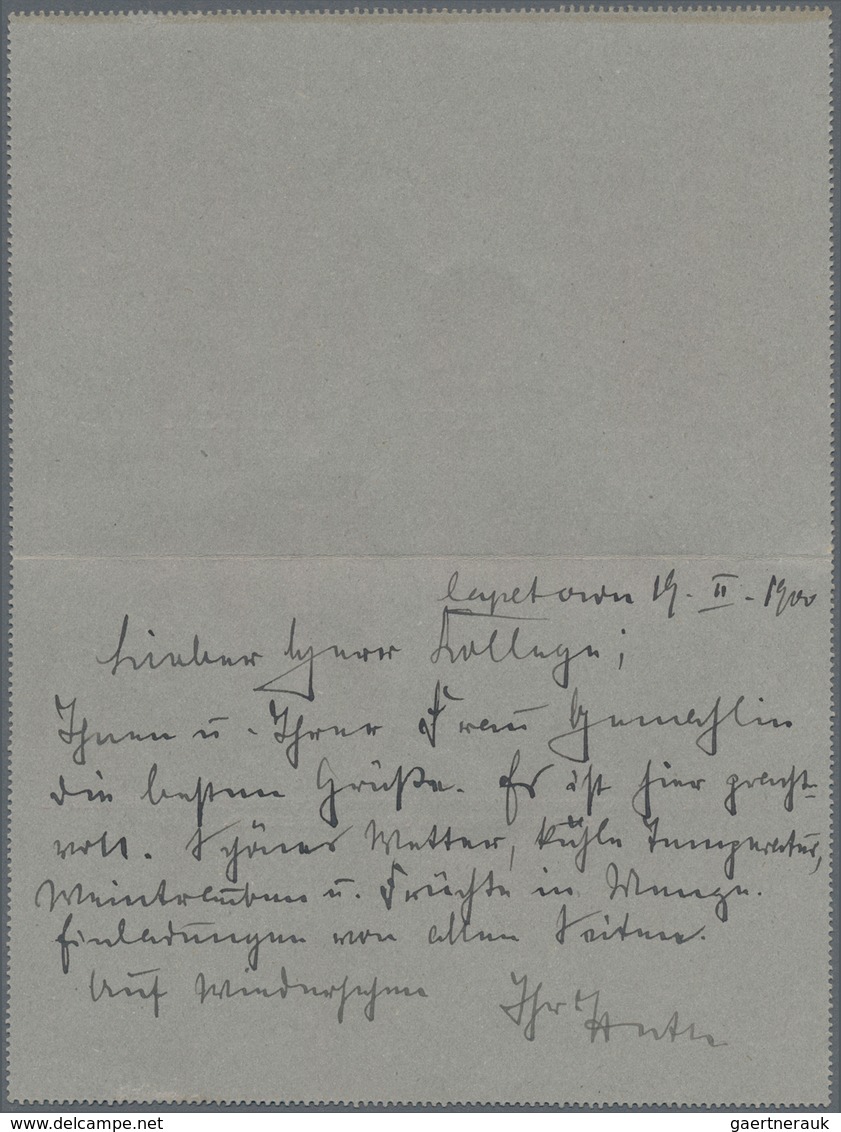 Capetown 19. II. 1900
Lieber Herr Kollege;
Ihnen u. Ihrer Frau Gemahlin
die besten Grüße. Es ist hier pracht-
voll. Schönes Wetter, kühle Temperatur,
Weintrauben u. Früchte in Menge.
Einladungen von allen Seiten.
Auf Wiedersehen Ihr
www.delcampe.net gaertnerauk